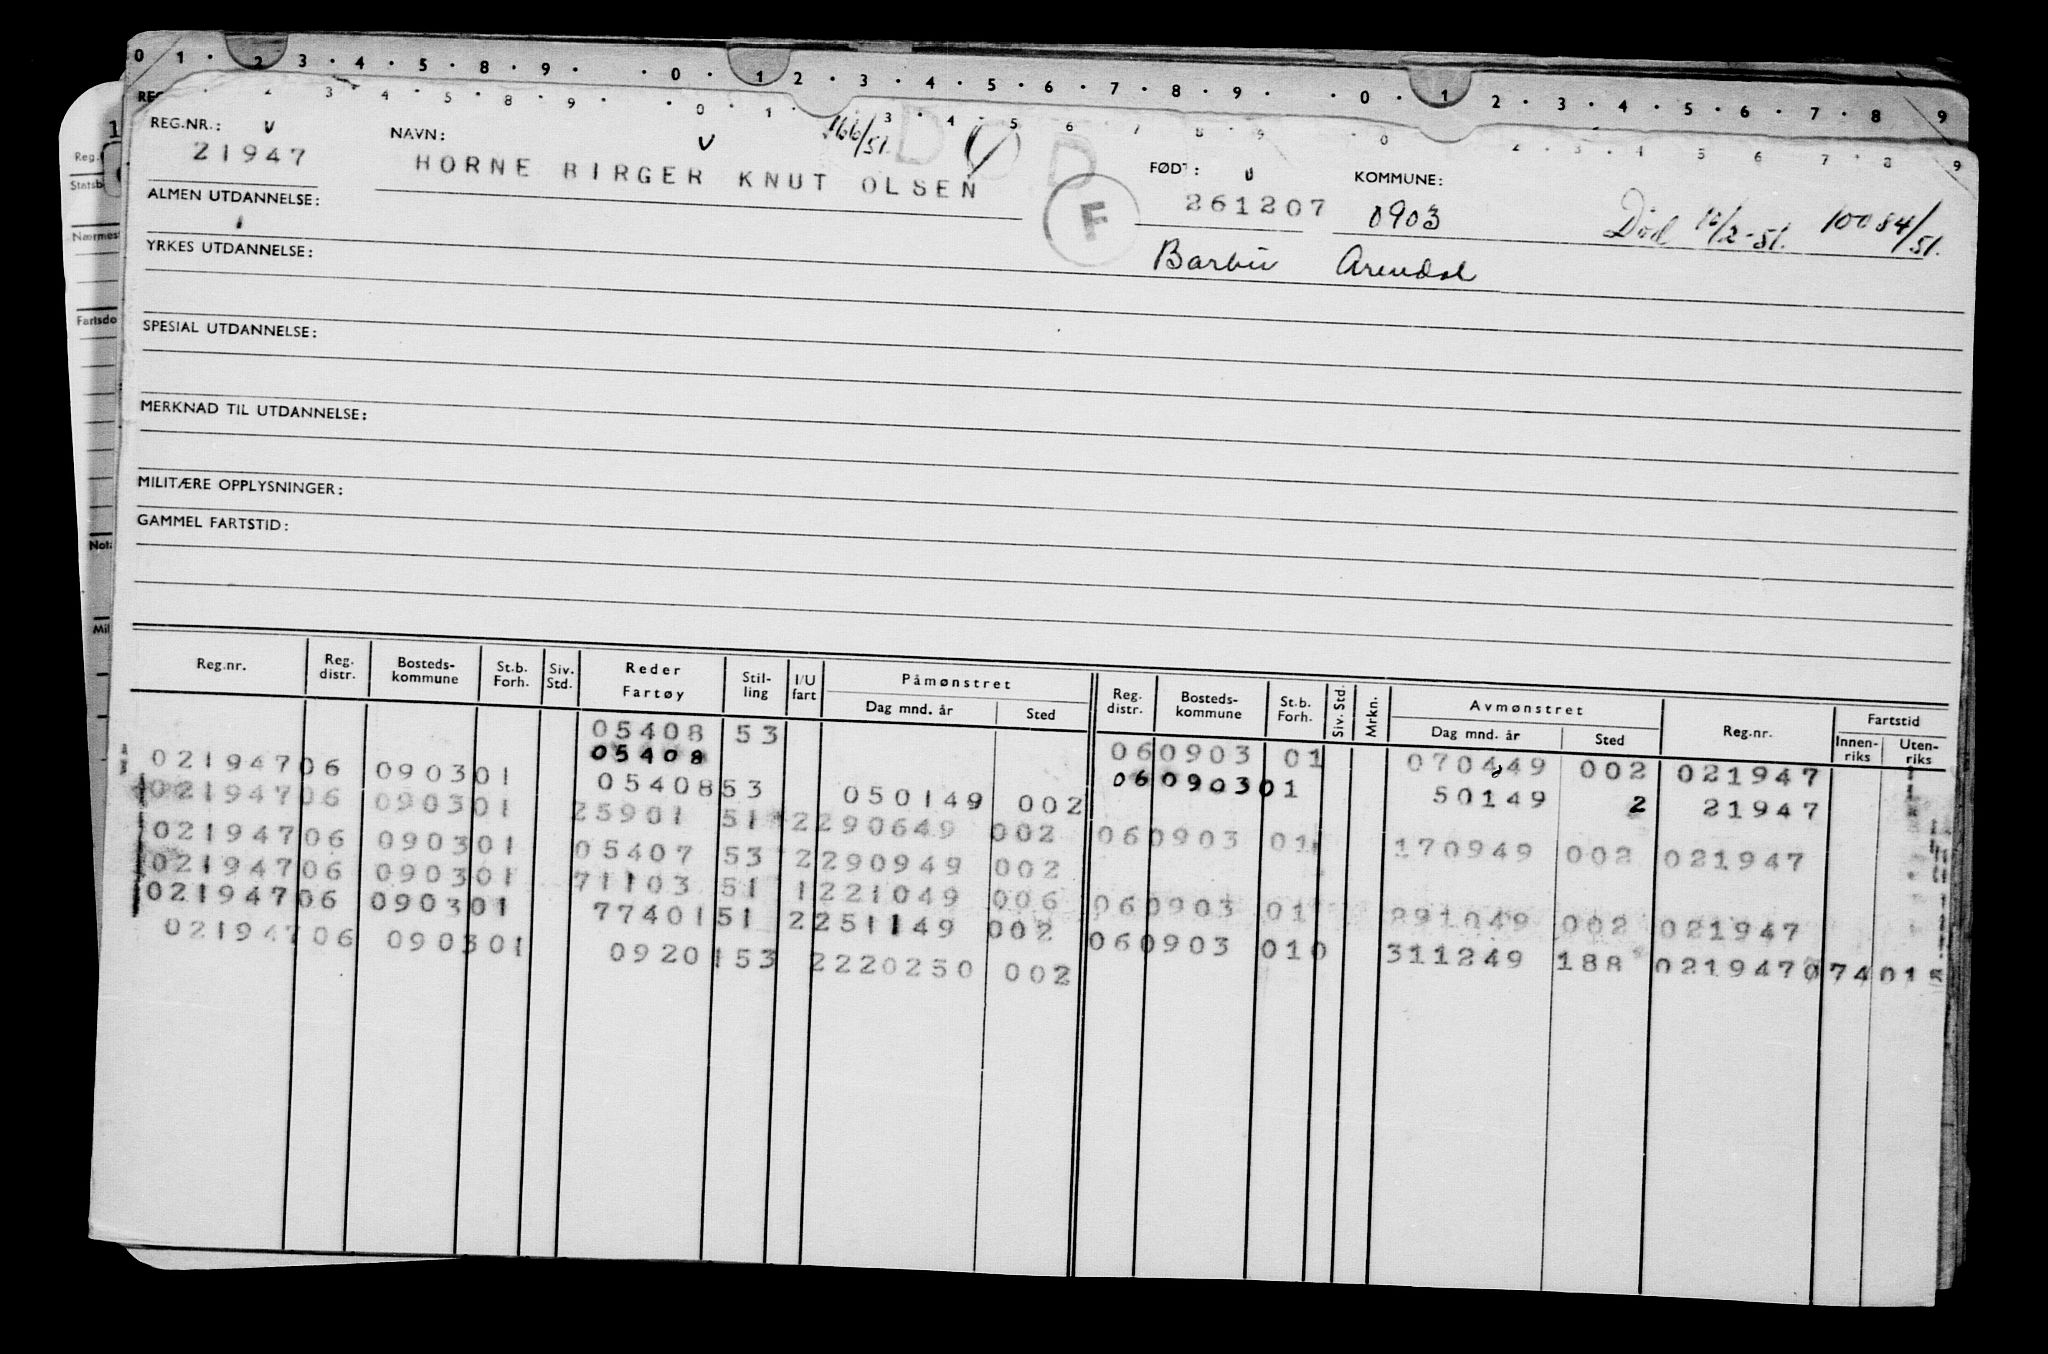 0 1 · 2 · 3 · 4 · 5 · 8 · 9 · · 0 · 1 2 · 3 · 4 · 5 · 6 · 7 · 8 · 9 · · 0 · 1 2 · 3 · 4 · 5 · 6 · 7 · 8 9
2 3 4 · 5 · 8 · 9 · · 0 · 1 · 3 · 4 · 5 6 7 8 9 0 2 · 3 · 4 5 6 7 · 8 9
REG.NR.: v NAVN: v 166/51. D D FØDT: v KOMMUNE:
21947 HORNE BIRGER KNUT OLSEN F 261207 0903 Død 10084/51.
ALMEN UTDANNELSE:
YRKES UTDANNELSE: Barbu Arendal
SPESIAL UTDANNELSE:
MERKNAD TIL UTDANNELSE:
MILITÆRE OPPLYSNINGER:
GAMMEL FARTSTID:
Reg.nr. Reg. distr. Bosteds- kommune St.b. Forh. Siv. Std. Reder Fartøy Stil- ling I/U fart Påmønstret Dag mnd. år Sted Reg. distr. Bosteds- kommune St.b. Forh. Siv. Std. Mrkn. Avmønstret Dag mnd. år Sted Reg.nr. Fartstid Innen- riks Uten- riks
05408 53 060903 01 070449 002 021947
05408 060903 01 50149 2 21947
021947 06 0903 01 05408 53 050149 002
021947 06 0903 01 25901 51 2 290649 002 060903 01 170949 002 021947
021947 06 0903 01 05407 53 2 290949 002
021947 06 0903 01 71103 51 1 221049 006 060903 01 291049 002 021947
021947 06 0903 01 77401 51 2 251149 002 060903 010 311249 188 021947 0 74 01
021947 06 0903 01 09201 53 2 220250 002